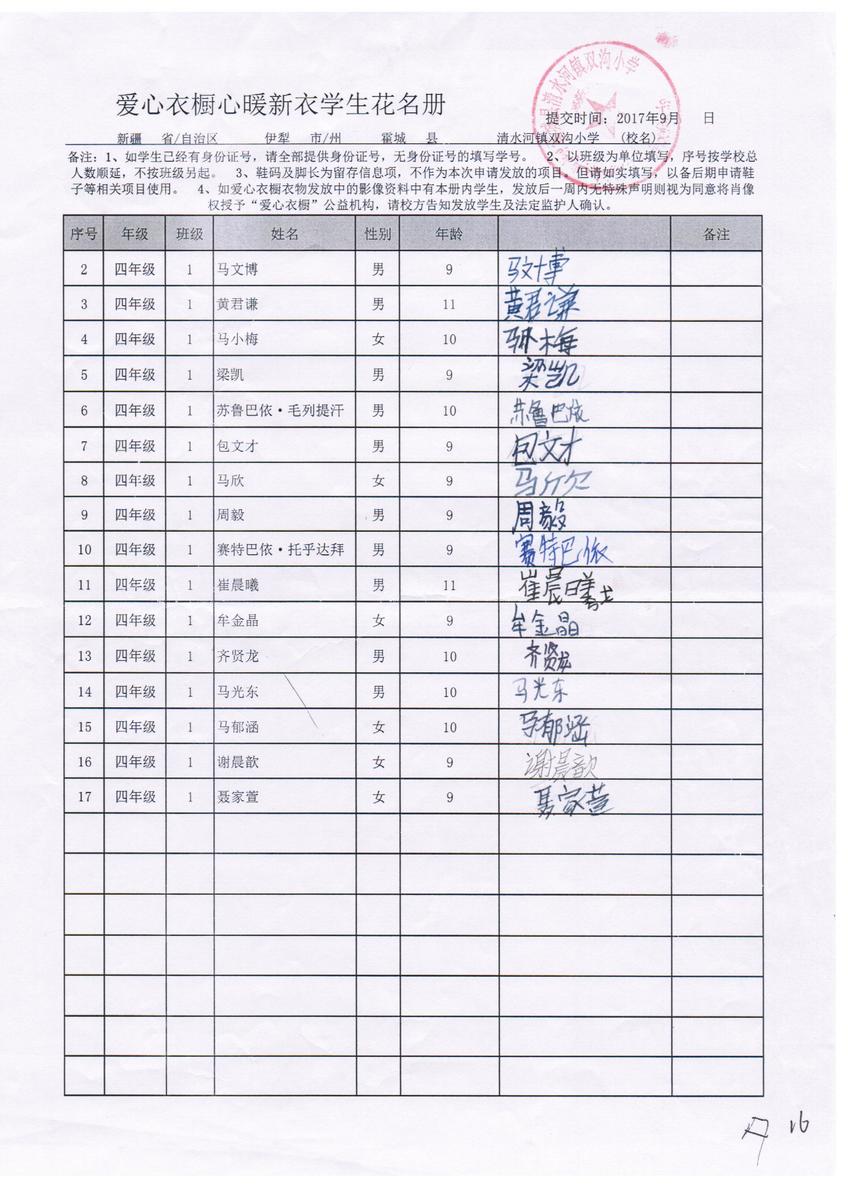 爱心衣橱心暖新衣学生花名册
清水河镇双沟小学
提交时间：2017年9月 日
新疆 省/自治区 伊犁 市/州 霍城 县 清水河镇双沟小学 (校名)
备注：1、如学生已经有身份证号，请全部提供身份证号，无身份证号的填写学号。 2、以班级为单位填写，序号按学校总
人数顺延，不按班级另起。 3、鞋码及脚长为留存信息项，不作为本次申请发放的项目，但请如实填写，以备后期申请鞋
子等相关项目使用。 4、如爱心衣橱衣物发放中的影像资料中有本册内学生，发放后一周内无特殊声明则视为同意将肖像
权授予“爱心衣橱”公益机构，请校方告知发放学生及法定监护人确认。
序号 年级 班级 姓名 性别 年龄 备注
2 四年级 1 马文博 男 9 马文博
3 四年级 1 黄君谦 男 11 黄君谦
4 四年级 1 马小梅 女 10 马小梅
5 四年级 1 梁凯 男 9 梁凯
6 四年级 1 苏鲁巴依·毛列提汗 男 10 苏鲁巴依
7 四年级 1 包文才 男 9 包文才
8 四年级 1 马欣 女 9 马欣
9 四年级 1 周毅 男 9 周毅
10 四年级 1 赛特巴依·托乎达拜 男 9 赛特巴依
11 四年级 1 崔晨曦 男 11 崔晨曦
12 四年级 1 牟金晶 女 9 牟金晶
13 四年级 1 齐贤龙 男 10 齐贤龙
14 四年级 1 马光东 男 10 马光东
15 四年级 1 马郁涵 女 10 马郁涵
16 四年级 1 谢晨歆 女 9 谢晨歆
17 四年级 1 聂家萱 女 9 聂家萱
16